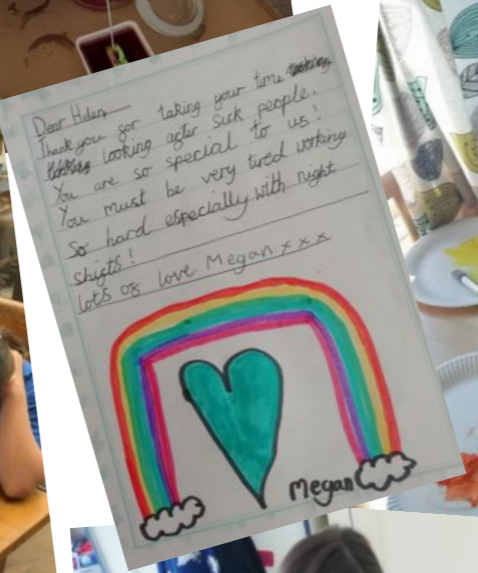 Dear Helen
Thank you gor taking your time
looking agter sick people.
You are so special to us!
You must be very tired working
so hard especially with night
shigts!
lots og love Megan xxx
Megan